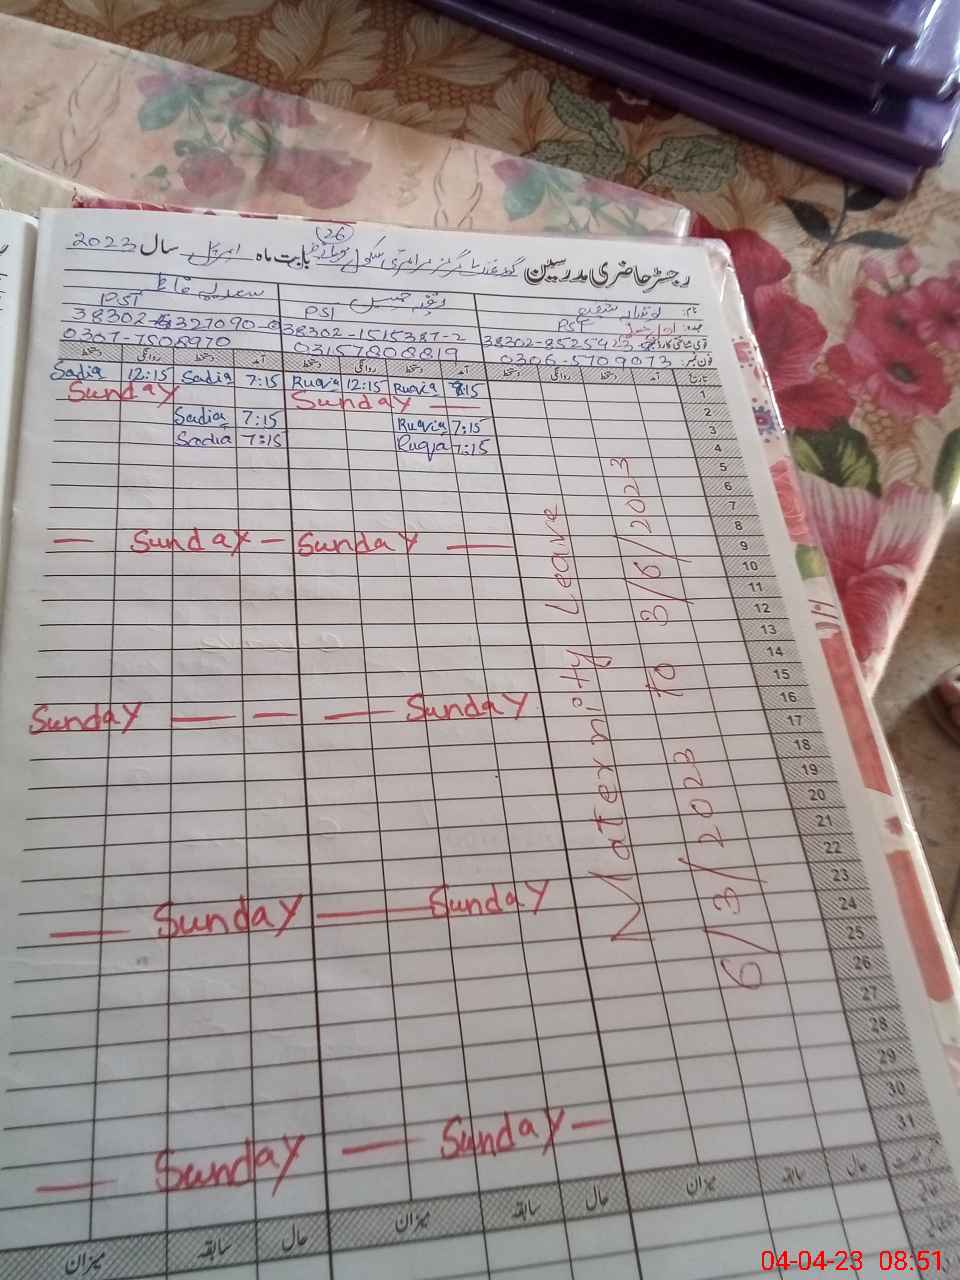 26
رجسٹر حاضری مدرسین گورنمنٹ گرلز پرائمری سکول بابت ماہ اپریل سال 2023
نام:
سعدیہ
PST PST PST
38302-8525423 38302-1515387-2 38302-6327090-0
فون نمبر: 0306-5709073 03157808819 0307-7508970
تاریخ آمد دستخط روانگی دستخط آمد دستخط روانگی دستخط آمد دستخط روانگی دستخط
Sadia 12:15 Sadia 7:15 Ruqia 12:15 Ruqia 8:15 1
Sunday Sunday — 2
Sadia 7:15 Ruqia 7:15 3
Sadia 7:15 Ruqia 7:15 4
5
6
7
8
— Sunday — Sunday — 9
10
11
12
13
14
15
Sunday — — — Sunday 16
17
18
19
20
21
22
— Sunday — Sunday 23
24
25
26
27
28
29
— Sunday — Sunday — 30
31
Maternity Leave
6/3/2023 to 3/6/2023
حال سابقہ میزان حال سابقہ میزان حال سابقہ میزان
04-04-23 08:51